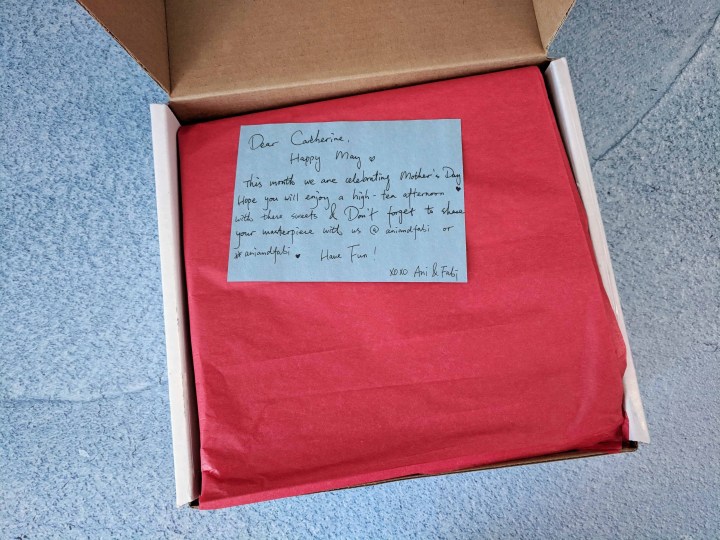 Dear Catherine,
Happy May ♥
This month we are celebrating Mother's Day
Hope you will enjoy a high-tea afternoon ♥
with these sweets & Don't forget to share
your masterpiece with us @ aniandfabi or
# aniandfabi ♥ Have Fun!
xoxo Ani & Fabi